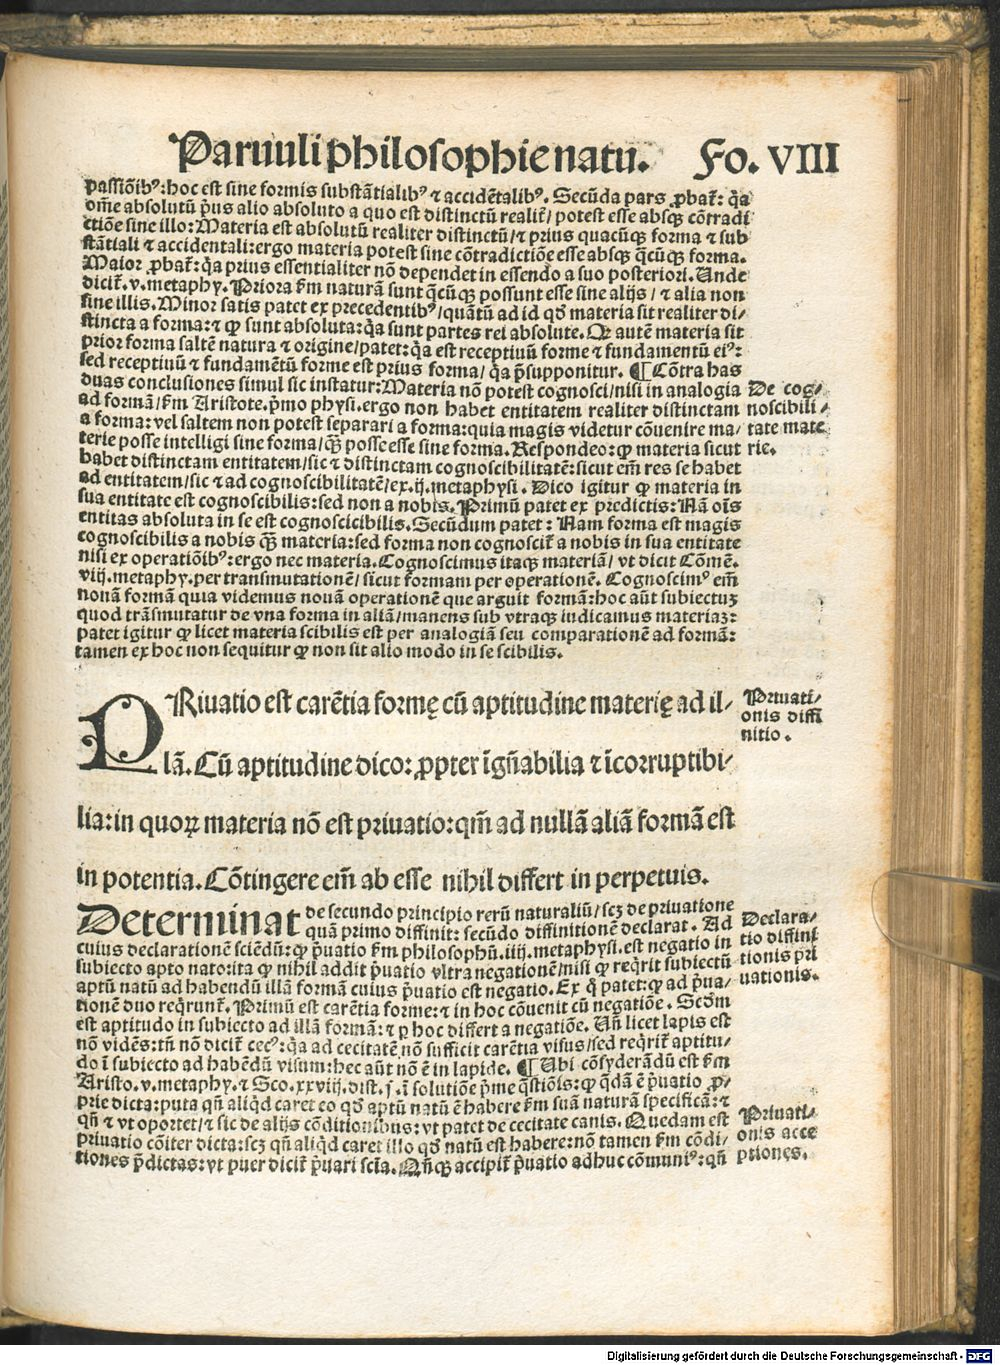 Paruuli philosophie natu. Fo. VIII
passiōibꝰ: hoc est sine formis substātialibꝰ ⁊ accidētalibꝰ. Secūda pars ꝓbat̄: q̄a
om̄e absolutū p̄us alio absoluto a quo est distinctū realit̄/ potest esse absqꝫ cōtradi
ctiōe sine illo: Materia est absolutū realiter distinctū/ ⁊ prius quacūqꝫ forma ⁊ sub
stātiali ⁊ accidentali: ergo materia potest sine cōtradictiōe esse absqꝫ q̄cūqꝫ forma.
Maior ꝓbat̄: q̄a prius essentialiter nō dependet in essendo a suo posteriori. Unde
dicit̄. v. metaphy. Priora ẜm naturā sunt q̄cūqꝫ possunt esse sine alijs/ ⁊ alia non
sine illis. Minor satis patet ex precedentibꝰ/ quātū ad id qd̄ materia sit realiter di⸗
stincta a forma: ⁊ ꝙ sunt absoluta: q̄a sunt partes rei absolute. Qꝛ autē materia sit
prior forma saltē natura ⁊ origine/ patet: q̄a est receptiuū forme ⁊ fundamentū eiꝰ:
sed receptiuū ⁊ fundamētū forme est prius forma/ q̄a p̄supponitur. ¶ Cōtra has
duas conclusiones simul sic instatur: Materia nō potest cognosci/ nisi in analogia
ad formā/ ẜm Aristote. pͥmo physi. ergo non habet entitatem realiter distinctam
a forma: vel saltem non potest separari a forma: quia magis videtur cōuenire ma⸗
terie posse intelligi sine forma/ qꝫ̄ posse esse sine forma. Respondeo: ꝙ materia sicut
habet distinctam entitatem/ sic ⁊ distinctam cognoscibilitatē: sicut em̄ res se habet
ad entitatem/ sic ⁊ ad cognoscibilitatē/ ex. ij. metaphysi. Dico igitur ꝙ materia in
sua entitate est cognoscibilis: sed non a nobis. Primū patet ex predictis: Nā oīs
entitas absoluta in se est cognoscicibilis. Secūdum patet: Nam forma est magis
cognoscibilis a nobis qꝫ̄ materia: sed forma non cognoscit̄ a nobis in sua entitate
nisi ex operatiōibꝰ: ergo nec materia. Cognoscimus itaqꝫ materiā/ vt dicit Cōmē.
viij. metaphy. per transmutationē/ sicut formam per operationē. Cognoscimꝰ em̄
nouā formā quia videmus nouā operationē que arguit formā: hoc aūt subiectuꝫ
quod trāsmutatur de vna forma in aliā/ manens sub vtraqꝫ iudicamus materiaꝫ:
patet igitur ꝙ licet materia scibilis est per analogiā seu comparationē ad formā:
tamen ex hoc non sequitur ꝙ non sit alio modo in se scibilis.
De cog⸗
noscibili⸗
tate mate
rie.
PRiuatio est carētia formę cū aptitudine materię ad il⸗
lā. Cū aptitudine dico: ꝓpter īgn̄abilia ⁊ īcorruptibi⸗
lia: in quoꝝ materia nō est priuatio: qm̄ ad nullā aliā formā est
in potentia. Cōtingere em̄ ab esse nihil differt in perpetuis.
Priuati⸗
onis diffi
nitio.
Determinat de secundo principio rerū naturaliū/ scꝫ de priuatione
quā primo diffinit: secūdo diffinitionē declarat. Ad
cuius declarationē sciēdū: ꝙ p̄uatio ẜm philosophū. iiij. metaphysi. est negatio in
subiecto apto nato: ita ꝙ nihil addit p̄uatio vltra negationē/ nisi ꝙ reqͥrit subiectū
aptū natū ad habendū illā formā cuius p̄uatio est negatio. Ex q̊ patet: ꝙ ad p̄ua⸗
tionē duo reqͥrunt̄. Primū est carētia forme: ⁊ in hoc cōuenit cū negatiōe. Scd̄m
est aptitudo in subiecto ad illā formā: ⁊ ꝑ hoc differt a negatiōe. Uñ licet lapis est
nō vidēs: tn̄ nō dicit̄ cecꝰ: q̄a ad cecitatē nō sufficit carētia visus/ sed reqͥrit̄ aptitu⸗
do ī subiecto ad habēdū visum: hec aūt nō ē in lapide. ¶ Ubi cōsyderādū est ẜm
Aristo. v. metaphy. ⁊ Sco. xxviij. dist. j. ī solutiōe pͥme q̄stiōis: ꝙ q̄dā ē p̄uatio ꝓ⸗
prie dicta: puta qn̄ aliqͥd caret eo qd̄ aptū natū ē habere ẜm suā naturā specificā: ⁊
qn̄ ⁊ vt oportet/ ⁊ sic de alijs cōditionibus: vt patet de cecitate canis. Quedam est
priuatio cōiter dicta: scꝫ qn̄ aliqͥd caret illo qd̄ natū est habere: nō tamen ẜm cōdi⸗
tiones p̄dictas: vt puer dicit̄ p̄uari scīa. Qn̄qꝫ accipit̄ p̄uatio adhuc cōmuniꝰ: qn̄
Declara⸗
tio diffini
tionis pri
uationis.
Priuati⸗
onis acce
ptiones.
Digitalisierung gefördert durch die Deutsche Forschungsgemeinschaft - DFG